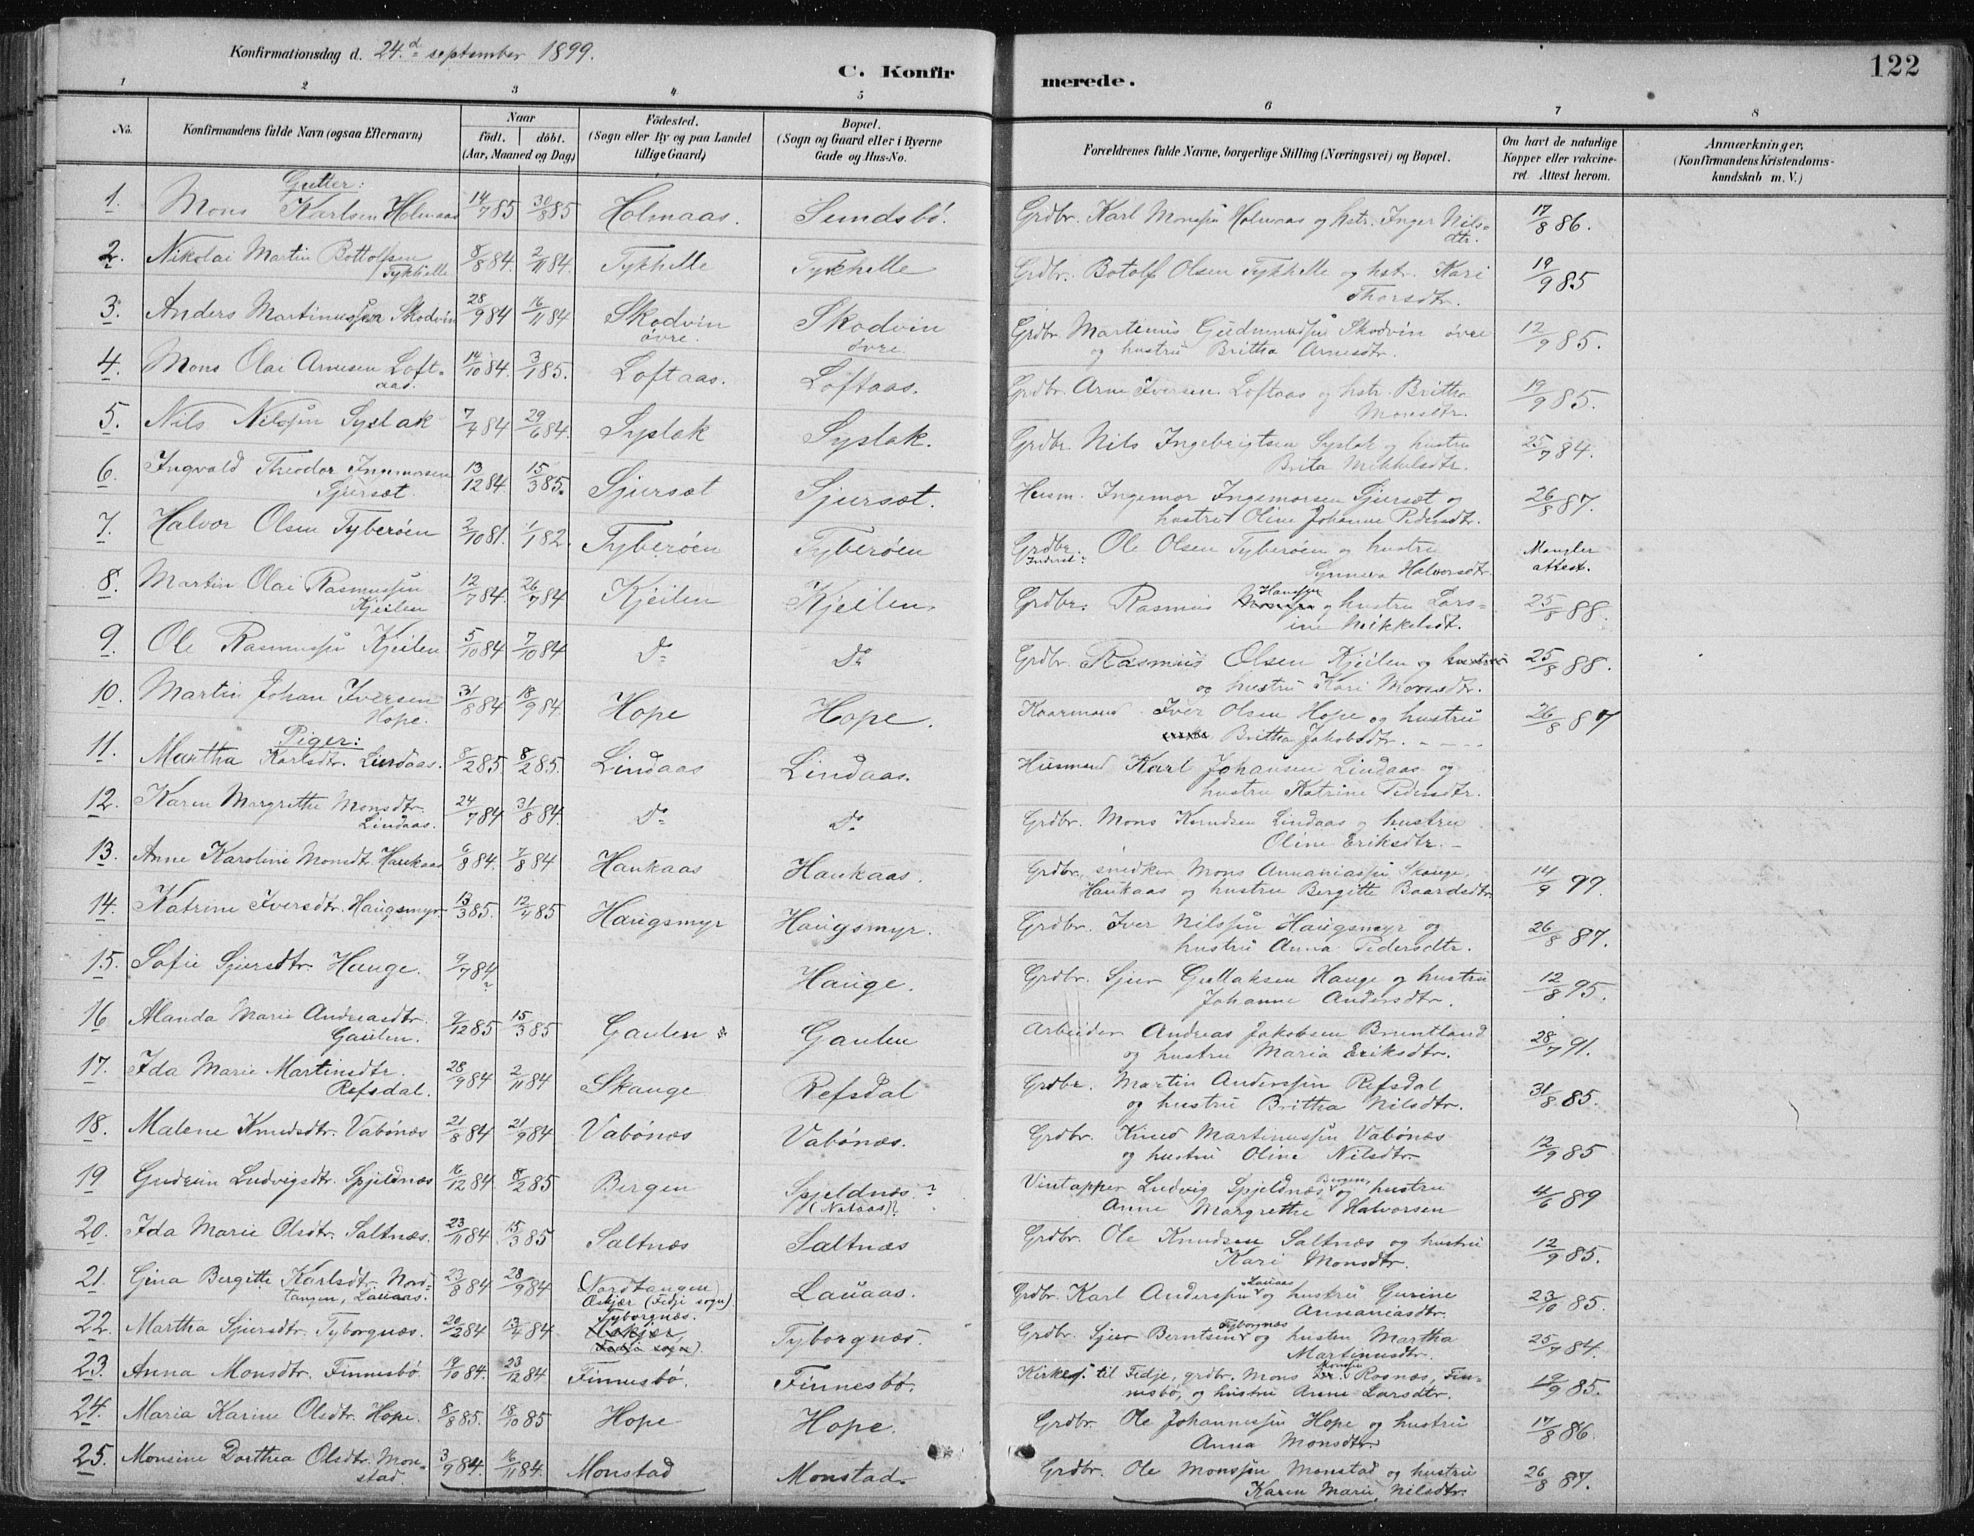 Konfirmationsdag d. 24.d september 1899.
C. Konfirmerede.
122
1 2 3 4 5 6 7 8
No.
Konfirmandens fulde Navn (ogsaa Efternavn)
Naar
födt. döbt.
(Aar, Maaned og Dag)
Födested.
(Sogn eller By og paa Landet
tillige Gaard)
Bopæl.
(Sogn og Gaard eller i Byerne
Gade og Hus-No.
Forældrenes fulde Navne, borgerlige Stilling (Næringsvei) og Bopæl.
Om havt de naturlige
Kopper eller vakcine-
ret. Attest herom.
Anmærkninger.
(Konfirmandens Kristendoms-
kundskab m. V.)
Gutter:
1. Mons Karlsen Holmaas 14/7 85 30/8 85 Holmaas. Sundsbö. Grdbr. Karl Monssen Holmaas og hstr. Inger Nils-
dtr. 17/8 86.
2. Nikolai Martin Bottolfsen
Tykhelle 8/8 84. 2/11 84. Tykhelle Tykhelle Grdbr. Botolf Olsen Tykhelle og hstr. Kari
Thorsdtr. 19/9 85
3. Anders Martinussen Skodvin 28/9 84 16/11 84 Skodvin
övre. Skodvin
övre Grdbr. Martinus Gudmundsen Skodvin övre
og hustru Britha Arnesdtr. 12/9 85.
4. Mons Olai Arnesen Loft-
aas. 14/10 84. 3/1 85. Loftaas. Loftaas. Grdbr. Arne Iversen Loftaas og hstr. Britha
Monsdtr. 19/9 85.
5. Nils Nilssen Syslak 7/4 84 29/6 84. Syslak Syslak. Grdbr. Nils Ingebrigtsen Syslak og hustru
Brita Mikkelsdtr. 25/7 84.
6. Ingvald Theodor Ingemorsen
Sjursæt. 13/12 84. 15/3 85. Sjursæt Sjursæt. Husm. Ingemor Ingemorsen Sjursæt og
hustru Oline Johanne Pedersdtr. 26/8 87.
7. Halvor Olsen Tyberöen 2/10 81. 1/1 82. Tyberöen Tyberöen Grdbr.
Inderst: Ole Olsen Tyberöen og hustru
Synneva Halvorsdtr. Mangler
attest.
8. Martin Olai Rasmussen
Kjeilen 12/7 84. 26/7 84 Kjeilen Kjeilen. Grdbr. Rasmus Hanssen og hustru Lars-
ine Mikkelsdt. 25/8 88.
9. Ole Rasmussen Kjeilen 5/10 84 7/10 84 Do Do Grdbr. Rasmus Olsen Kjeilen og hustru
og hustru Kari Monsdtr. 25/8 88.
10. Martin Johan Iversen
Hope. 31/8 84 18/9 84. Hope Hope. Kaarmand Iver Olsen Hope og hustru
Britha Jakobsdtr. 26/8 87
Piger:
11. Martha Karlsdtr. Lindaas. 8/2 85. 8/2 85. Lindaas Lindaas. Husmand Karl Johansen Lindaas og
hustru Katrine Pedersdtr.
12. Karen Margrethe Monsdtr.
Lindaas. 24/7 84 31/8 84. Do Do Grdbr. Mons Knudsen Lindaas og hustru
Oline Eriksdtr.
13. Anne Karoline Monsdt. Haukaas 6/8 84. 7/8 84 Haukaas Haukaas. Grdbr. snedker Mons Annaniassen Skauge,
Haukaas og hustru Bergitte Baardsdtr 14/9 99.
14. Katrine Iversdtr. Haugsmyr 13/3 85. 12/4 85 Haugsmyr Haugsmyr. Grdbr. Iver Nilssen Haugsmyr og
hustru Anna Pedersdtr. 26/8 87.
15. Sofie Sjursdtr. Hauge. 9/7 84 Hauge. Grdbr. Sjur Gullaksen Hauge og hustru
Johanne Andersdtr. 12/8 95.
16 Alanda Marie Andreasdtr.
Gaulen. 9/12 85 15/3 85 Gaulen Gaulen Arbeider Andreas Jakobsen Bruntland
og hustru Maria Eriksdtr. 28/7 91.
17. Ida Marie Martinsdtr.
Refsdal. 28/9 84 2/11 84 Skauge Refsdal Grdbr. Martin Anderssen Refsdal
og hustru Britha Nilsdtr. 31/8 85.
18. Malene Knudsdtr. Vabönæs 21/8 84 21/9 84 Vabönæs Vabönæs. Grdbr. Knud Martinussen Vabönæs
og hustru Oline Nilsdtr. 12/9 85
19 Gudrun Ludvigsdtr. Spjeldnæs 16/12 84. 8/2 85 Bergen Spjeldnæs.?
(Nataas)? Vintapper Ludvig Spjeldnæs Bergen, og hustru
Anne Margrethe Halvorsen 4/6 89
20. Ida Marie Olsdtr. Saltnæs. 23/11 84 15/3 85 Saltnæs Saltnæs Grdbr. Ole Knudsen Saltnæs og hustru
Kari Monsdtr. 12/9 85.
21. Gina Bergitte Karlsdtr. Nord-
tangen, Lauaas. 23/8 84 28/9 84 Nordtangen
Oskjær (Fedje sogn). Lauaas. Grdbr. Karl Anderssen Lauaas og hustru Gurine
Annaniasdtr. 23/10 85.
22. Martha Sjursdtr. Tyborgnæs. 20/2 84 13/4 84 Tyborgnæs. Tyborgnæs Grdbr. Sjur Berntsen Tyborgnæs og hustru Martha
Martinusdtr. 25/7 84.
23. Anna Monsdtr. Finnesbö. 19/10 84. 23/12 84 Finnesbö. Finnesbö. Kirkesg. til Fedje, grdbr. Mons Monssen Rosnæs, Fin-
nesbö, og hustru Anne Larsdtr. 19/9 85.
24. Maria Karine Olsdtr. Hope. 8/8 85. 18/10 85 Hope Hope. Grdbr. Ole Johannessen Hope og hustru
Anna Monsdtr. 17/8 86.
25. Monsine Dorthea Olsdtr. Mon-
stad 3/9 84. 16/11 84. Monstad Monstad. Grdbr. Ole Monssen Monstad og hustru
Karen Marie Nilsdtr. 26/8 87.